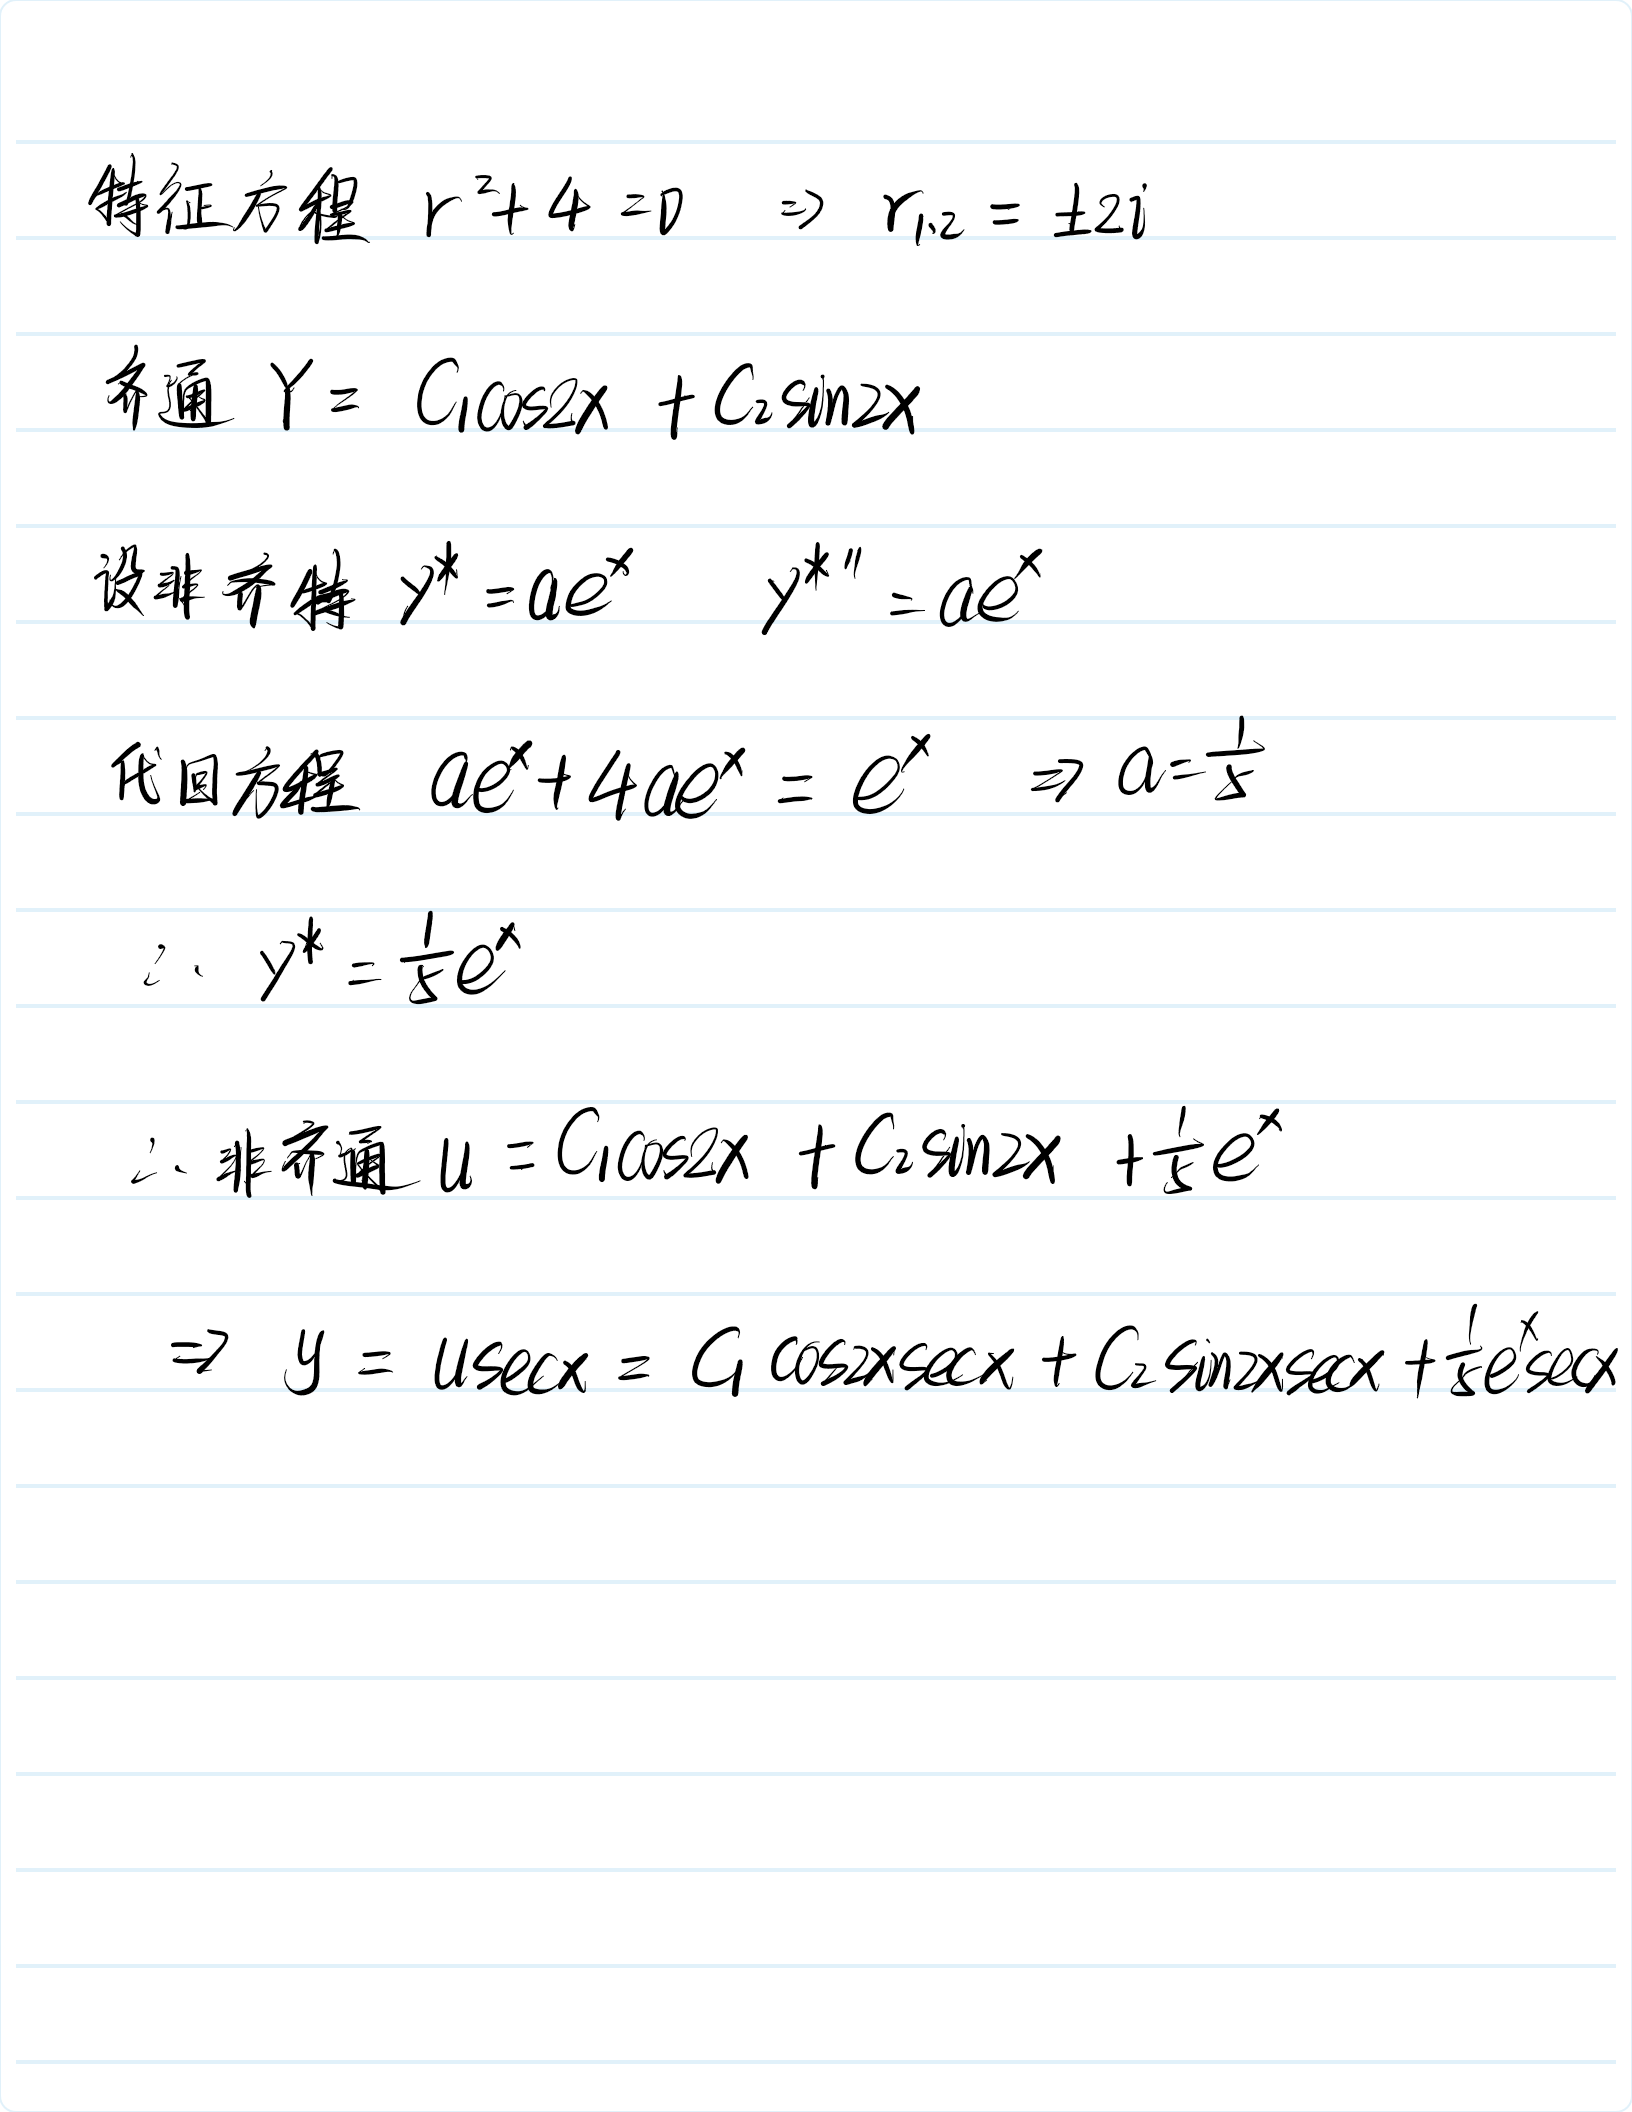 特征方程 r²+4=0 ⇒ r₁,₂ = ±2i
齐通 Y = C₁cos2x + C₂sin2x
设非齐特 y* = aeˣ y*″ = aeˣ
代回方程 aeˣ+4aeˣ = eˣ ⇒ a=1/5
∴ y* = 1/5 eˣ
∴ 非齐通 u = C₁cos2x + C₂sin2x + 1/5 eˣ
⇒ y = usecx = C₁cos2xsecx + C₂sin2xsecx + 1/5 eˣsecx